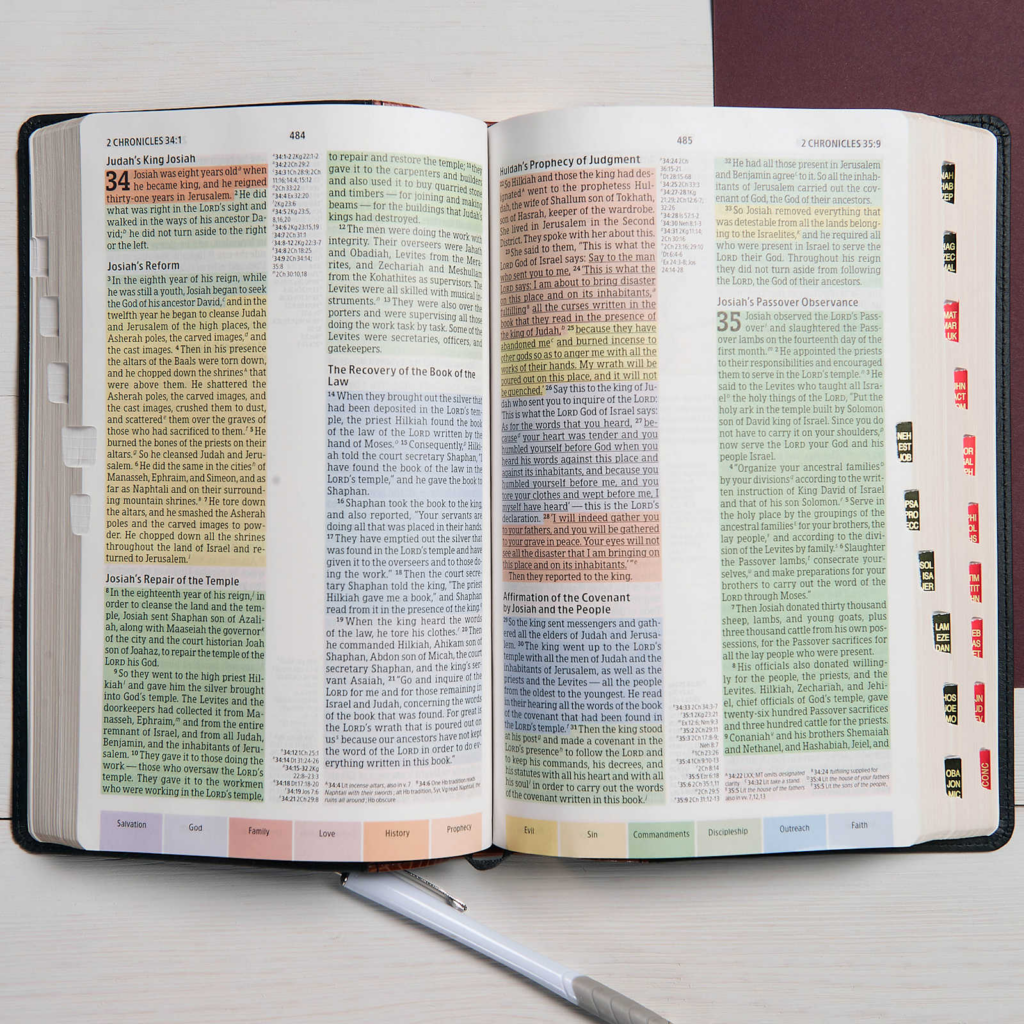 2 CHRONICLES 34:1
484
Judah's King Josiah
34 Josiah was eight years old when
he became king, and he reigned
thirty-one years in Jerusalem. 2 He did
what was right in the LORD's sight and
walked in the ways of his ancestor Da-
vid; he did not turn aside to the right
or the left.
Josiah's Reform
3 In the eighth year of his reign, while
he was still a youth, Josiah began to seek
the God of his ancestor David, and in the
twelfth year he began to cleanse Judah
and Jerusalem of the high places, the
Asherah poles, the carved images, and
the cast images. 4 Then in his presence
the altars of the Baals were torn down,
and he chopped down the shrines that
were above them. He shattered the
Asherah poles, the carved images, and
the cast images, crushed them to dust,
and scattered them over the graves of
those who had sacrificed to them. 5 He
burned the bones of the priests on their
altars. So he cleansed Judah and Jeru-
salem. 6 He did the same in the cities of
Manasseh, Ephraim, and Simeon, and as
far as Naphtali and on their surround-
ing mountain shrines. 7 He tore down
the altars, and he smashed the Asherah
poles and the carved images to pow-
der. He chopped down all the shrines
throughout the land of Israel and re-
turned to Jerusalem.
Josiah's Repair of the Temple
8 In the eighteenth year of his reign, in
order to cleanse the land and the tem-
ple, Josiah sent Shaphan son of Azali-
ah, along with Maaseiah the governor
of the city and the court historian Joah
son of Joahaz, to repair the temple of the
LORD his God.
9 So they went to the high priest Hil-
kiah and gave him the silver brought
into God's temple. The Levites and the
doorkeepers had collected it from Ma-
nasseh, Ephraim, and from the entire
remnant of Israel, and from all Judah,
Benjamin, and the inhabitants of Jeru-
salem. 10 They gave it to those doing the
work — those who oversaw the LORD's
temple. They gave it to the workmen
who were working in the LORD's temple,
to repair and restore the temple; 11 they
gave it to the carpenters and builders
and also used it to buy quarried stone
and timbers — for joining and making
beams — for the buildings that Judah's
kings had destroyed.
12 The men were doing the work with
integrity. Their overseers were Jahath
and Obadiah, Levites from the Mera-
rites, and Zechariah and Meshullam
from the Kohathites as supervisors. The
Levites were all skilled with musical in-
struments. 13 They were also over the
porters and were supervising all those
doing the work task by task. Some of the
Levites were secretaries, officers, and
gatekeepers.
The Recovery of the Book of the
Law
14 When they brought out the silver that
had been deposited in the LORD's tem-
ple, the priest Hilkiah found the book
of the law of the LORD written by the
hand of Moses. 15 Consequently, Hilki-
ah told the court secretary Shaphan, "I
have found the book of the law in the
LORD's temple," and he gave the book to
Shaphan.
16 Shaphan took the book to the king,
and also reported, "Your servants are
doing all that was placed in their hands.
17 They have emptied out the silver that
was found in the LORD's temple and have
given it to the overseers and to those do-
ing the work." 18 Then the court secre-
tary Shaphan told the king, "The priest
Hilkiah gave me a book," and Shaphan
read from it in the presence of the king.
19 When the king heard the words
of the law, he tore his clothes. 20 Then
he commanded Hilkiah, Ahikam son of
Shaphan, Abdon son of Micah, the court
secretary Shaphan, and the king's ser-
vant Asaiah, 21 "Go and inquire of the
LORD for me and for those remaining
in Israel and Judah, concerning the words
of the book that was found. For great is
the LORD's wrath that is poured out on
us because our ancestors have not kept
the word of the LORD in order to do ev-
erything written in this book."
Salvation God Family Love History Prophecy
485
2 CHRONICLES 35:9
Huldah's Prophecy of Judgment
22 So Hilkiah and those the king had des-
ignated went to the prophetess Hul-
dah, the wife of Shallum son of Tokhath,
son of Hasrah, keeper of the wardrobe.
She lived in Jerusalem in the Second
District. They spoke with her about this.
23 She said to them, "This is what the
LORD God of Israel says: Say to the man
who sent you to me, 24 'This is what the
LORD says: I am about to bring disaster
on this place and on its inhabitants,
fulfilling all the curses written in the
book that they read in the presence of
the king of Judah, 25 because they have
abandoned me and burned incense to
other gods so as to anger me with all the
works of their hands. My wrath will be
poured out on this place, and it will not
be quenched.' 26 Say this to the king of Ju-
dah who sent you to inquire of the LORD:
'This is what the LORD God of Israel says:
As for the words that you heard, 27 be-
cause your heart was tender and you
humbled yourself before God when you
heard his words against this place and
against its inhabitants, and because you
humbled yourself before me, and you
tore your clothes and wept before me, I
myself have heard' — this is the LORD's
declaration. 28 'I will indeed gather you
to your fathers, and you will be gathered
to your grave in peace. Your eyes will not
see all the disaster that I am bringing on
this place and on its inhabitants.'"
Then they reported to the king.
Affirmation of the Covenant
by Josiah and the People
29 So the king sent messengers and gath-
ered all the elders of Judah and Jerusa-
lem. 30 The king went up to the LORD's
temple with all the men of Judah and the
inhabitants of Jerusalem, as well as the
priests and the Levites — all the people
from the oldest to the youngest. He read
in their hearing all the words of the book
of the covenant that had been found in
the LORD's temple. 31 Then the king stood
at his post and made a covenant in the
LORD's presence to follow the LORD and
to keep his commands, his decrees, and
his statutes with all his heart and with all
his soul in order to carry out the words
of the covenant written in this book.
32 He had all those present in Jerusalem
and Benjamin agree to it. So all the inhab-
itants of Jerusalem carried out the cov-
enant of God, the God of their ancestors.
33 So Josiah removed everything that
was detestable from all the lands belong-
ing to the Israelites, and he required all
who were present in Israel to serve the
LORD their God. Throughout his reign
they did not turn aside from following
the LORD, the God of their ancestors.
Josiah's Passover Observance
35 Josiah observed the LORD's Pass-
over and slaughtered the Pass-
over lambs on the fourteenth day of the
first month. 2 He appointed the priests
to their responsibilities and encouraged
them to serve in the LORD's temple. 3 He
said to the Levites who taught all Isra-
el the holy things of the LORD, "Put the
holy ark in the temple built by Solomon
son of David king of Israel. Since you do
not have to carry it on your shoulders,
now serve the LORD your God and his
people Israel.
4 "Organize your ancestral families
by your divisions according to the writ-
ten instruction of King David of Israel
and that of his son Solomon. 5 Serve in
the holy place by the groupings of the
ancestral families for your brothers, the
people, and according to the divi-
sion of the Levites by family. 6 Slaughter
the Passover lambs, consecrate your-
selves, and make preparations for your
brothers to carry out the word of the
LORD through Moses."
7 Then Josiah donated thirty thousand
sheep, lambs, and young goats, plus
three thousand cattle from his own pos-
sessions, for the Passover sacrifices for
all the lay people who were present.
8 His officials also donated willing-
ly for the people, the priests, and the
Levites. Hilkiah, Zechariah, and Jehi-
el, chief officials of God's temple, gave
twenty-six hundred Passover sacrifices
and three hundred cattle for the priests.
9 Conaniah and his brothers Shemaiah
and Nethanel, and Hashabiah, Jeiel, and
Evil Sin Commandments Discipleship Outreach Faith
NEH
EST
JOB
PSA
PRO
ECC
SOL
ISA
JER
LAM
EZE
DAN
HOS
JOE
AMO
OBA
JON
MIC
NAH
HAB
ZEP
HAG
ZEC
MAL
MAT
MAR
LUK
CONC